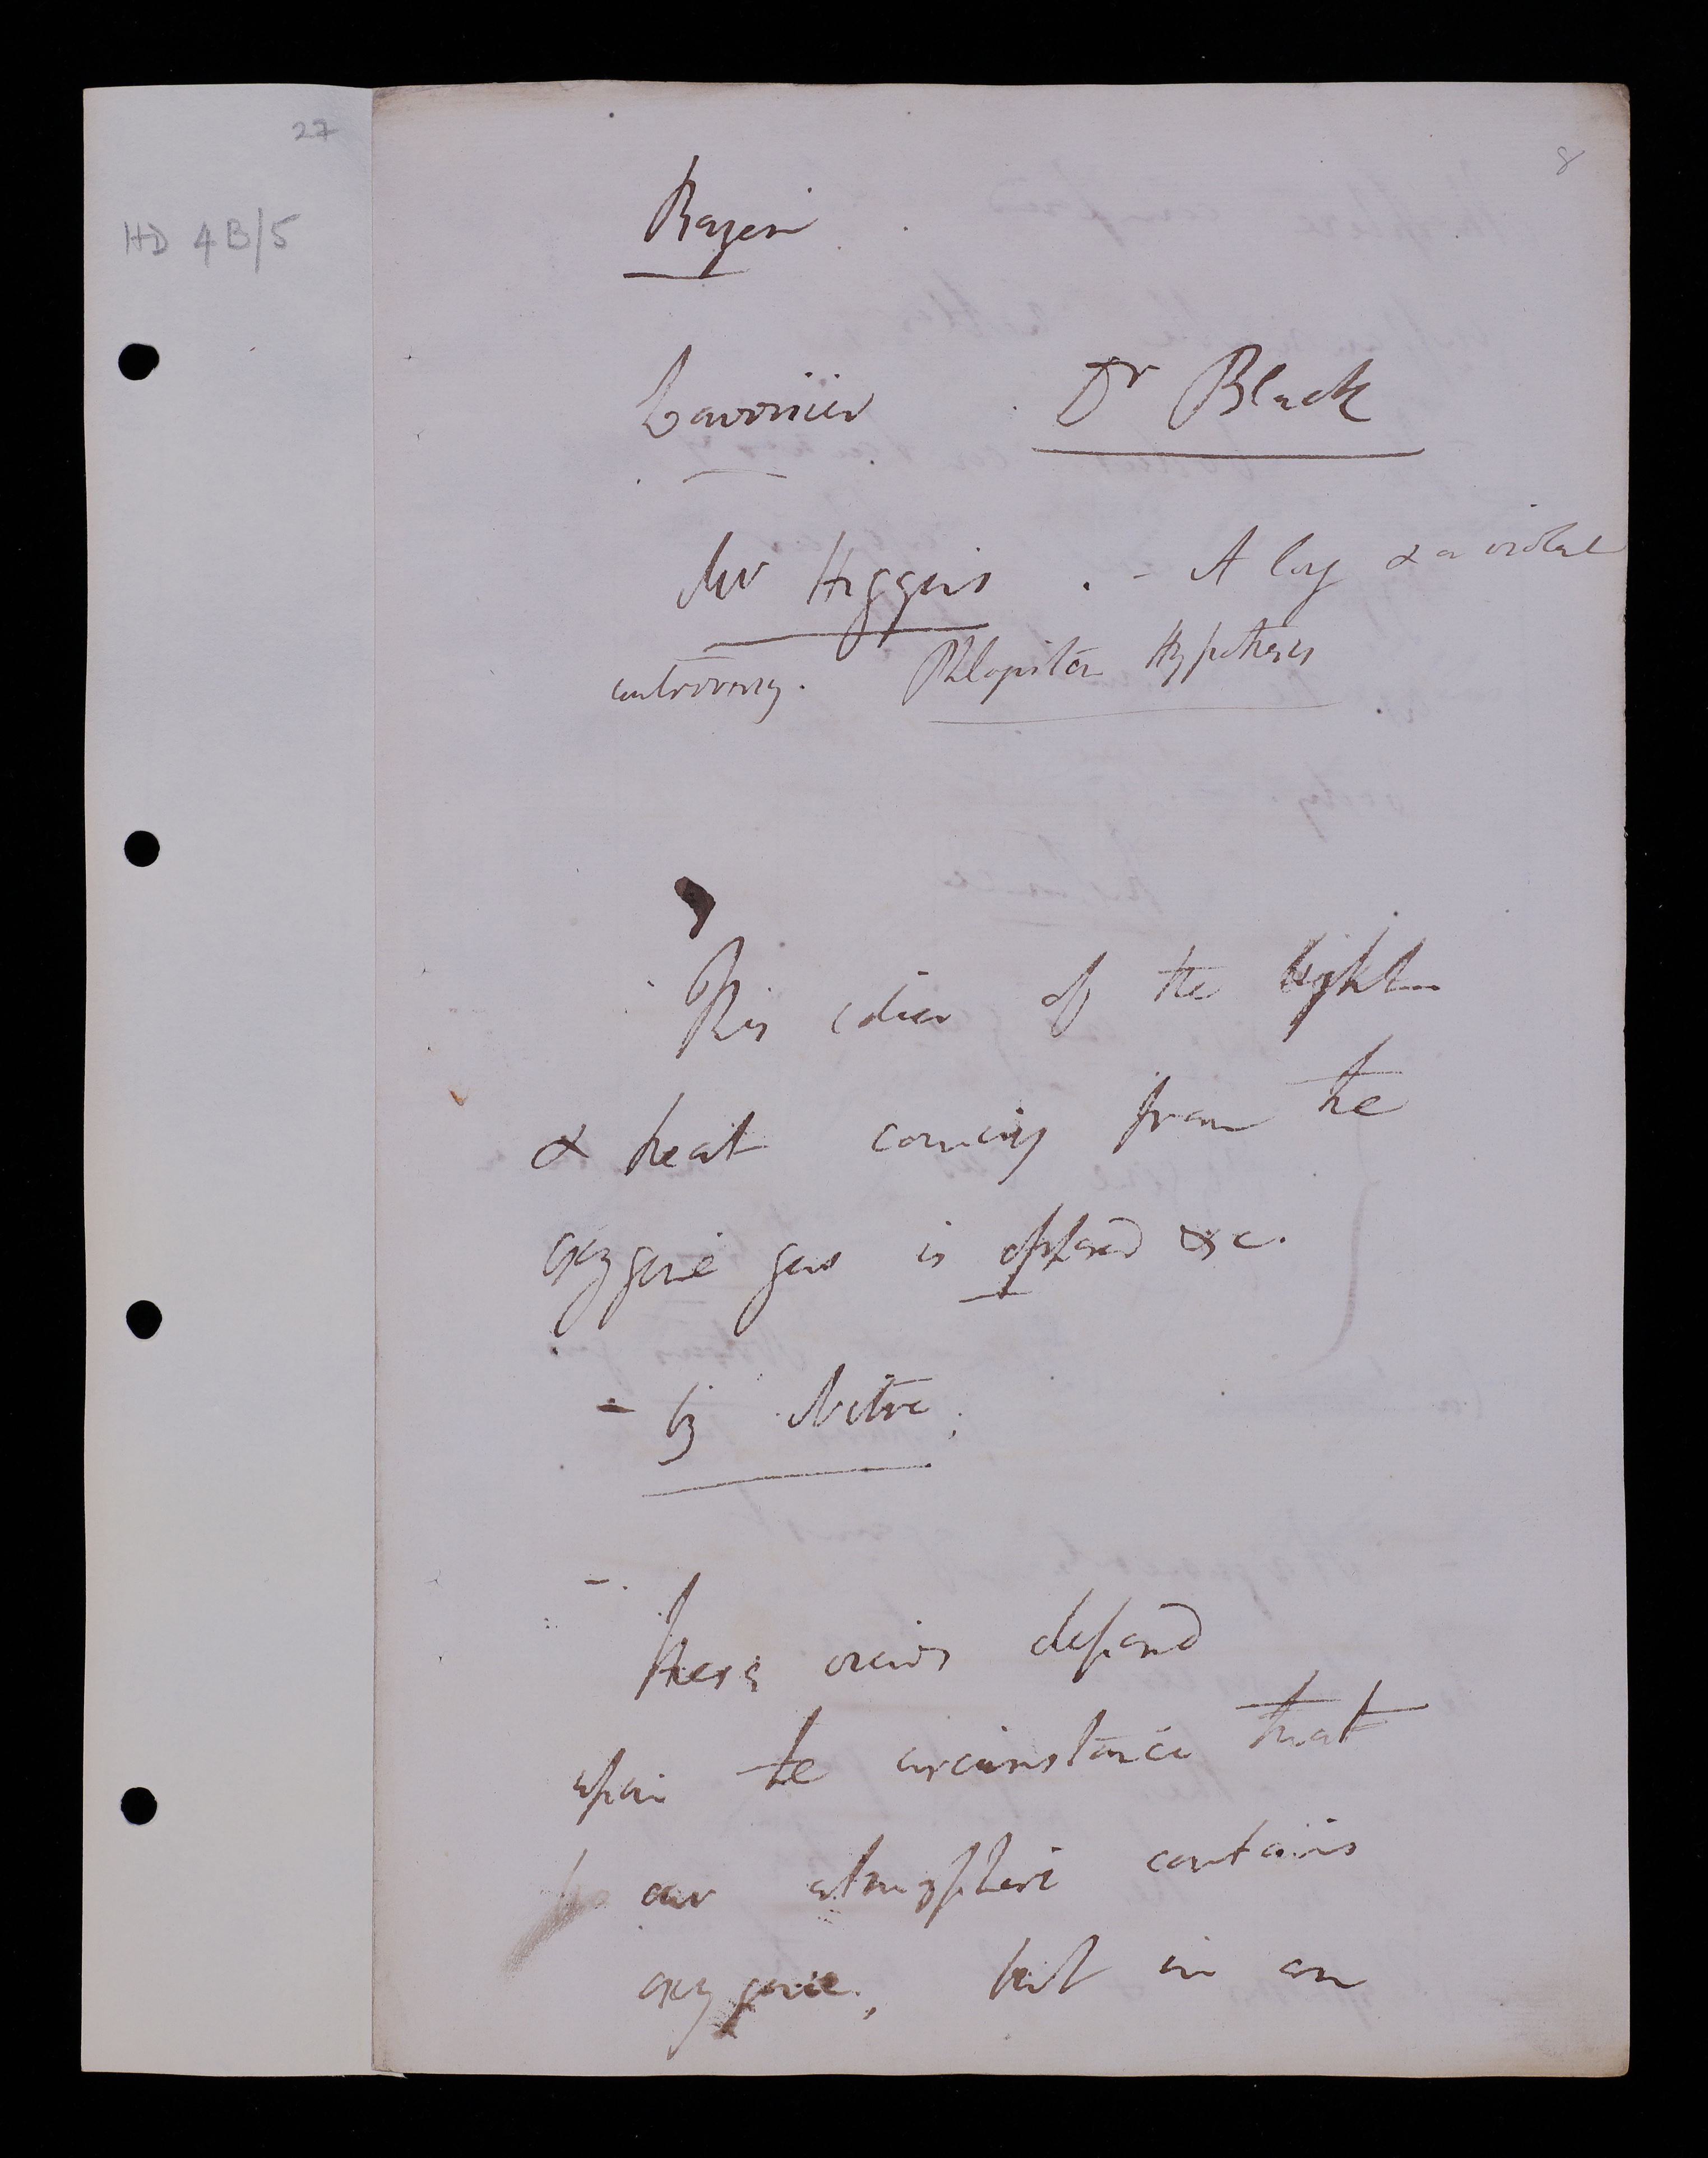 27
8
HD 4B/5
Bayen
Lavoisier Dr Black
Mr Higgins . - A long & a violent
controversy. Phlogiston Hypothesis
This idea of the light
& heat coming from the
oxygene gas is opposed &c.
- by Nitre;
-. These views depend
upon the circumstance that
our atmosphere contains
oxygene, but in an